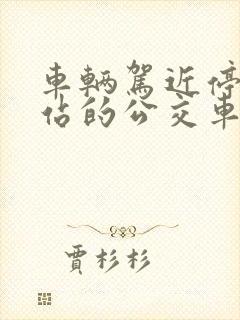 車輛駕近停
佔的公交車
賈杉杉